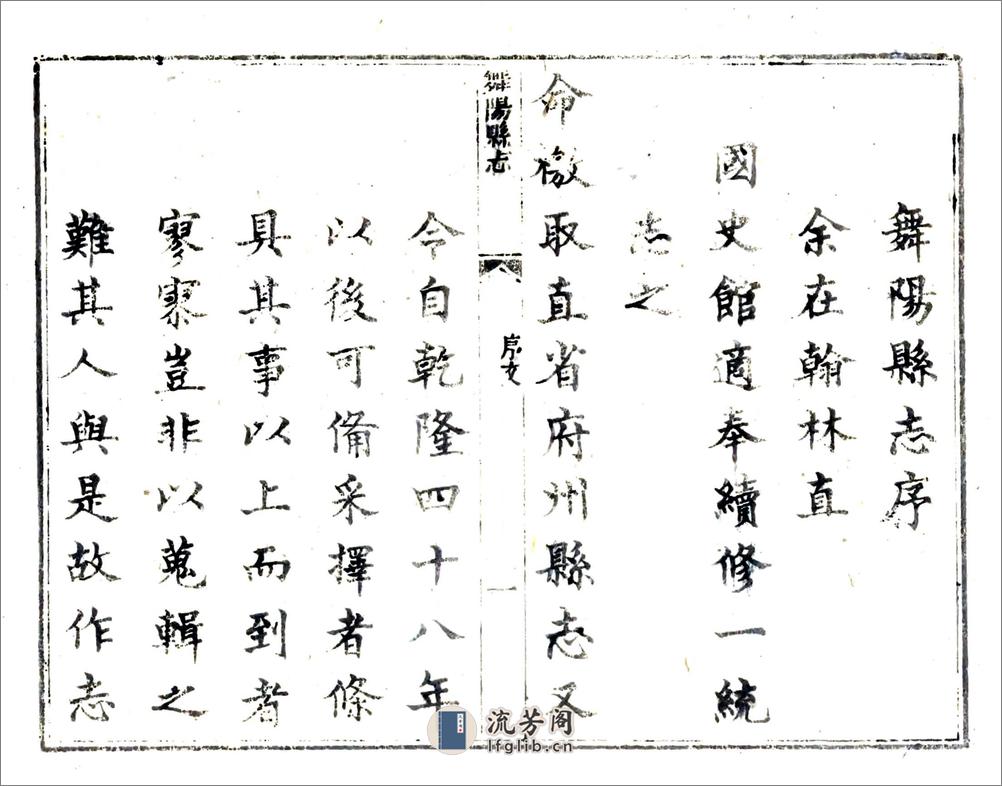 舞陽縣志序
余在翰林直
國史館適奉續修一統
志之
命檄取直省府州縣志又
舞陽縣志
序文
一
令自乾隆四十八年
以後可備采擇者條
具其事以上而到者
寥寥豈非以蒐輯之
難其人與是故作志
流芳阁
lfglib.cn